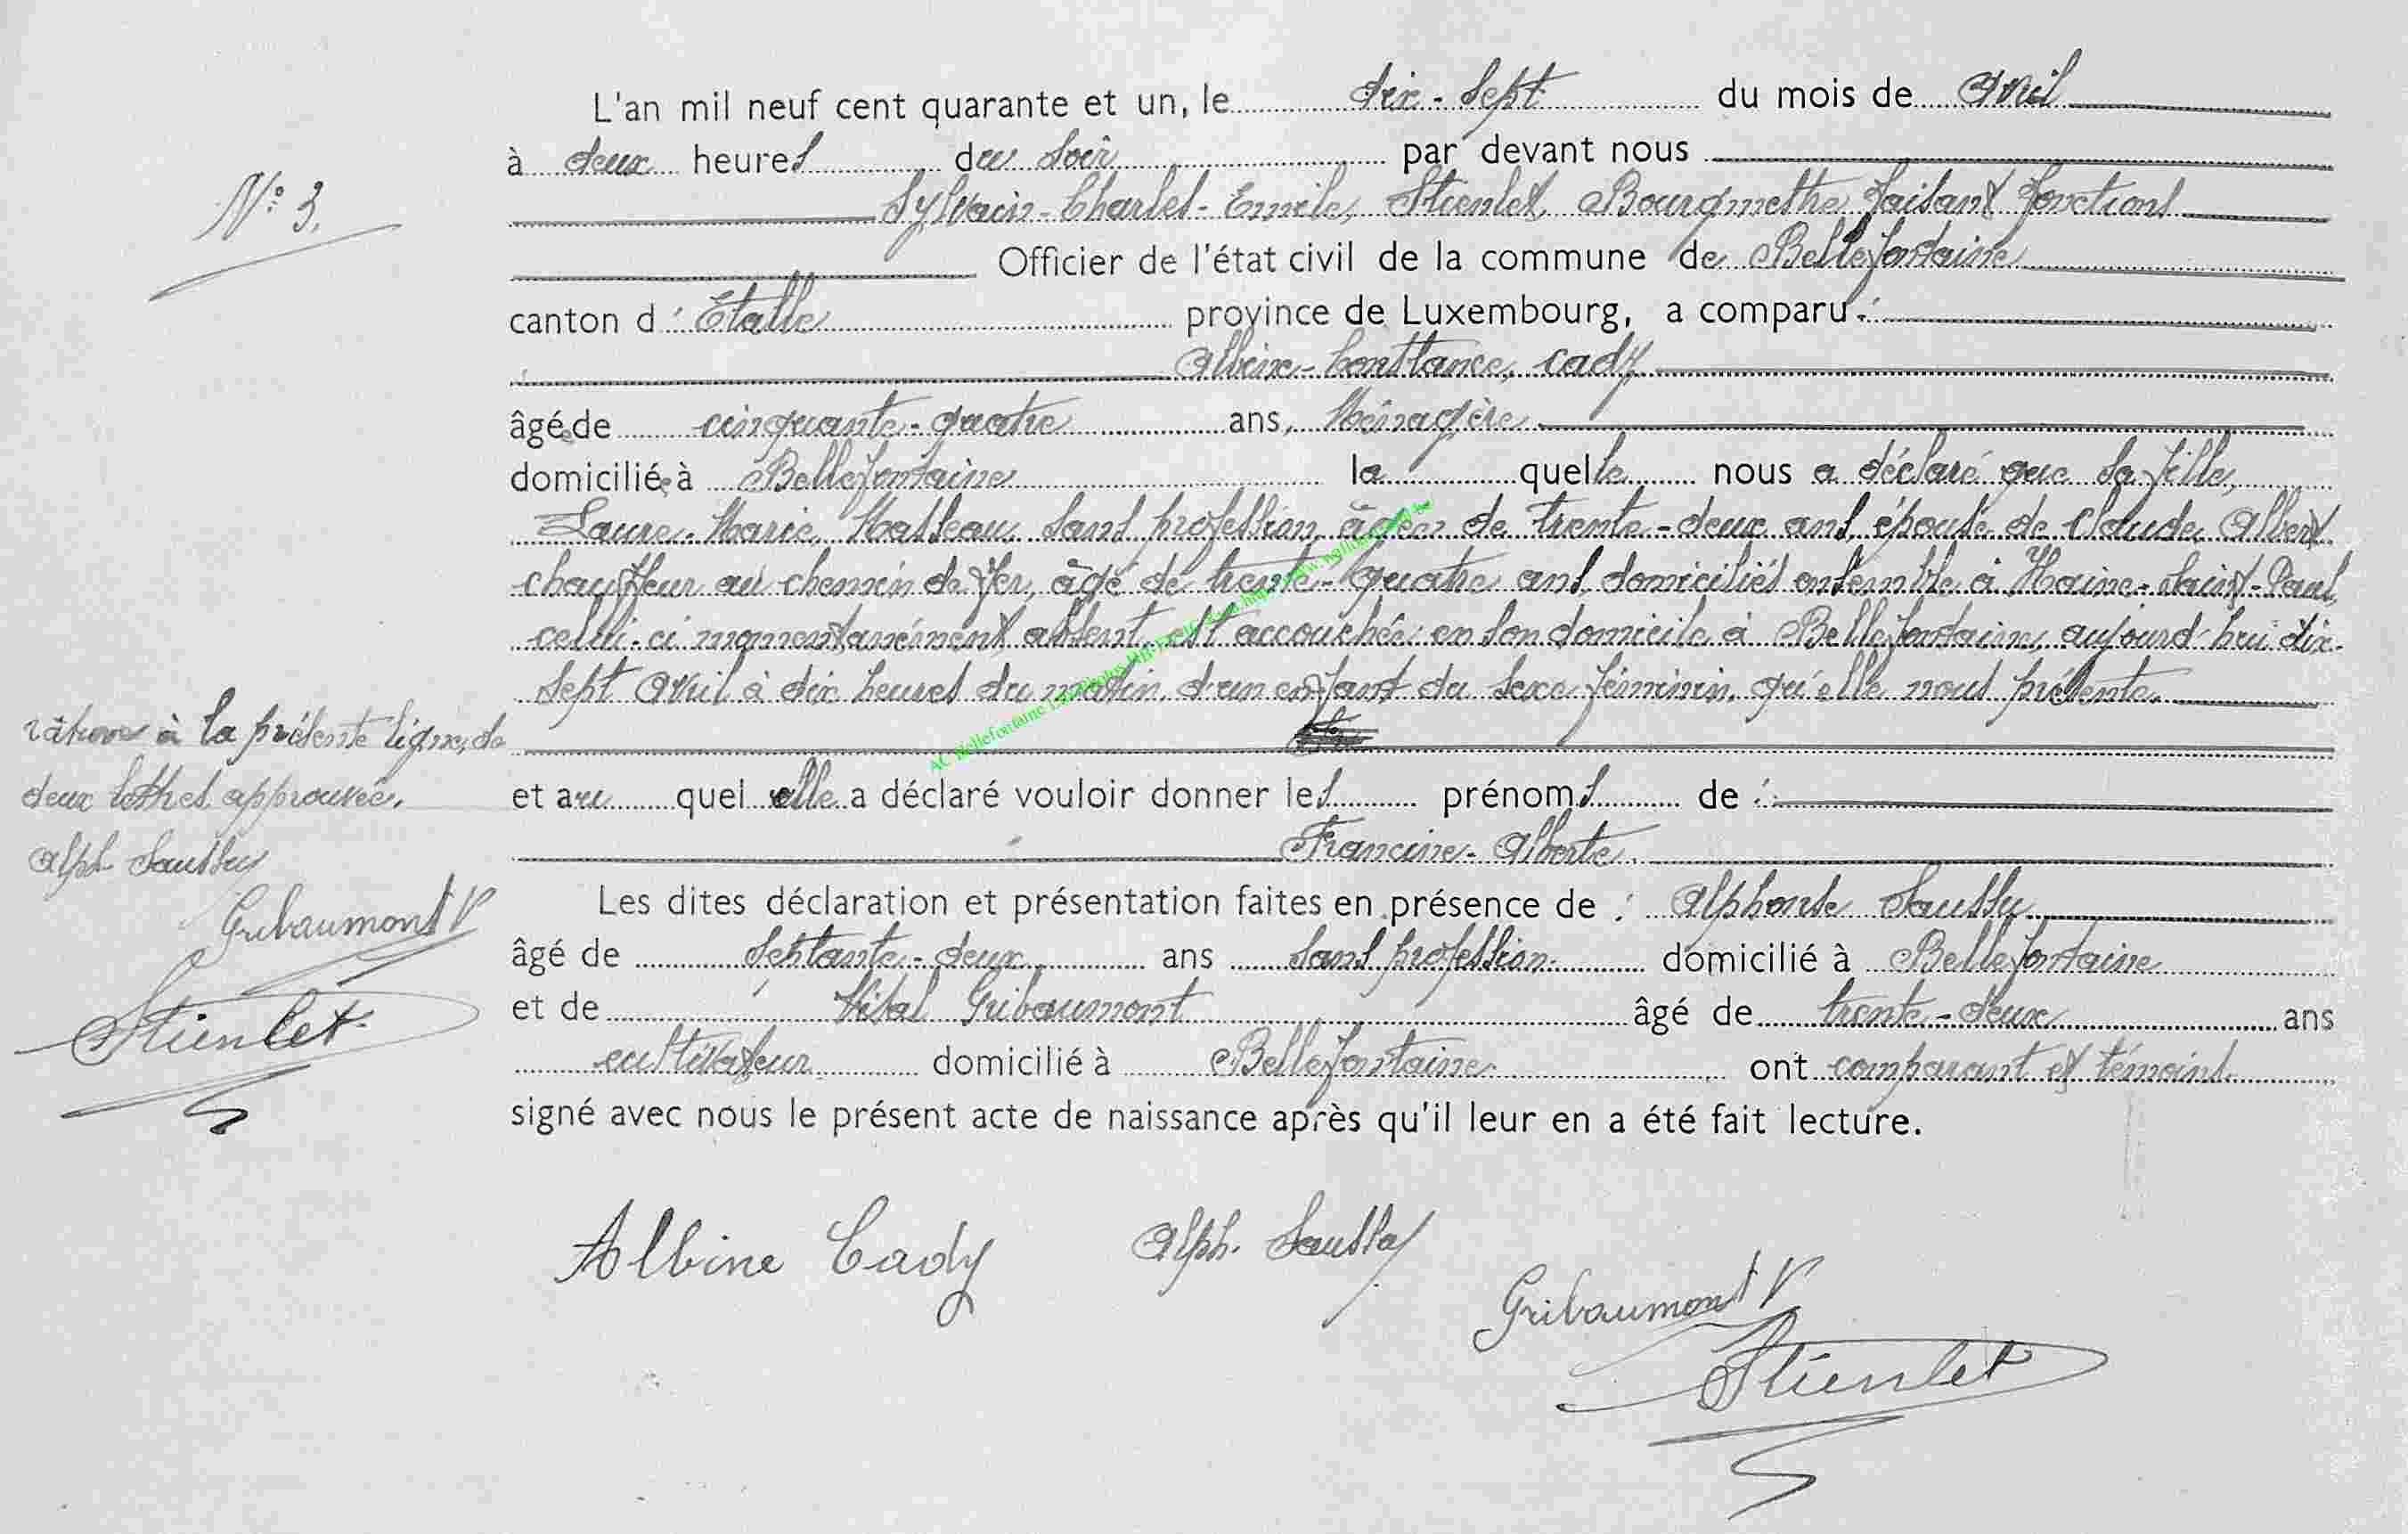 L'an mil neuf cent quarante et un, le dix-sept du mois de avril
à deux heures du soir par devant nous
N° 3.
Sylvain-Charles-Emile, Stienlet, Bourgmestre faisant fonctions
Officier de l'état civil de la commune de Bellefontaine
canton d'Etalle province de Luxembourg, a comparu :
Albine-Constance, Cady
âgée de cinquante-quatre ans, Ménagère
domiciliée à Bellefontaine laquelle nous a déclaré que sa fille,
Laure-Marie, Masseau, sans profession, âgée de trente-deux ans, épouse de Claude, Albert
chauffeur au chemin de fer, âgé de trente-quatre ans, domiciliés ensemble à Haine-Saint-Paul,
celui-ci momentanément absent, est accouchée en son domicile à Bellefontaine, aujourd'hui dix-
sept avril à dix heures du matin, d'un enfant du sexe féminin, qu'elle nous présente.
rature à la présente ligne, de
deux lettres approuvée.
et au quel elle a déclaré vouloir donner les prénoms de :
Francine-Alberte.
Alph Saussu
Les dites déclaration et présentation faites en présence de : Alphonse Saussu
Gribaumont V
âgé de septante-deux ans sans profession domicilié à Bellefontaine
et de Vital Gribaumont âgé de trente-deux ans
Stienlet
cultivateur domicilié à Bellefontaine ont comparant et témoins
signé avec nous le présent acte de naissance après qu'il leur en a été fait lecture.
Albine Cady
Alph. Saussu
Gribaumont V
Stienlet
AC Bellefontaine